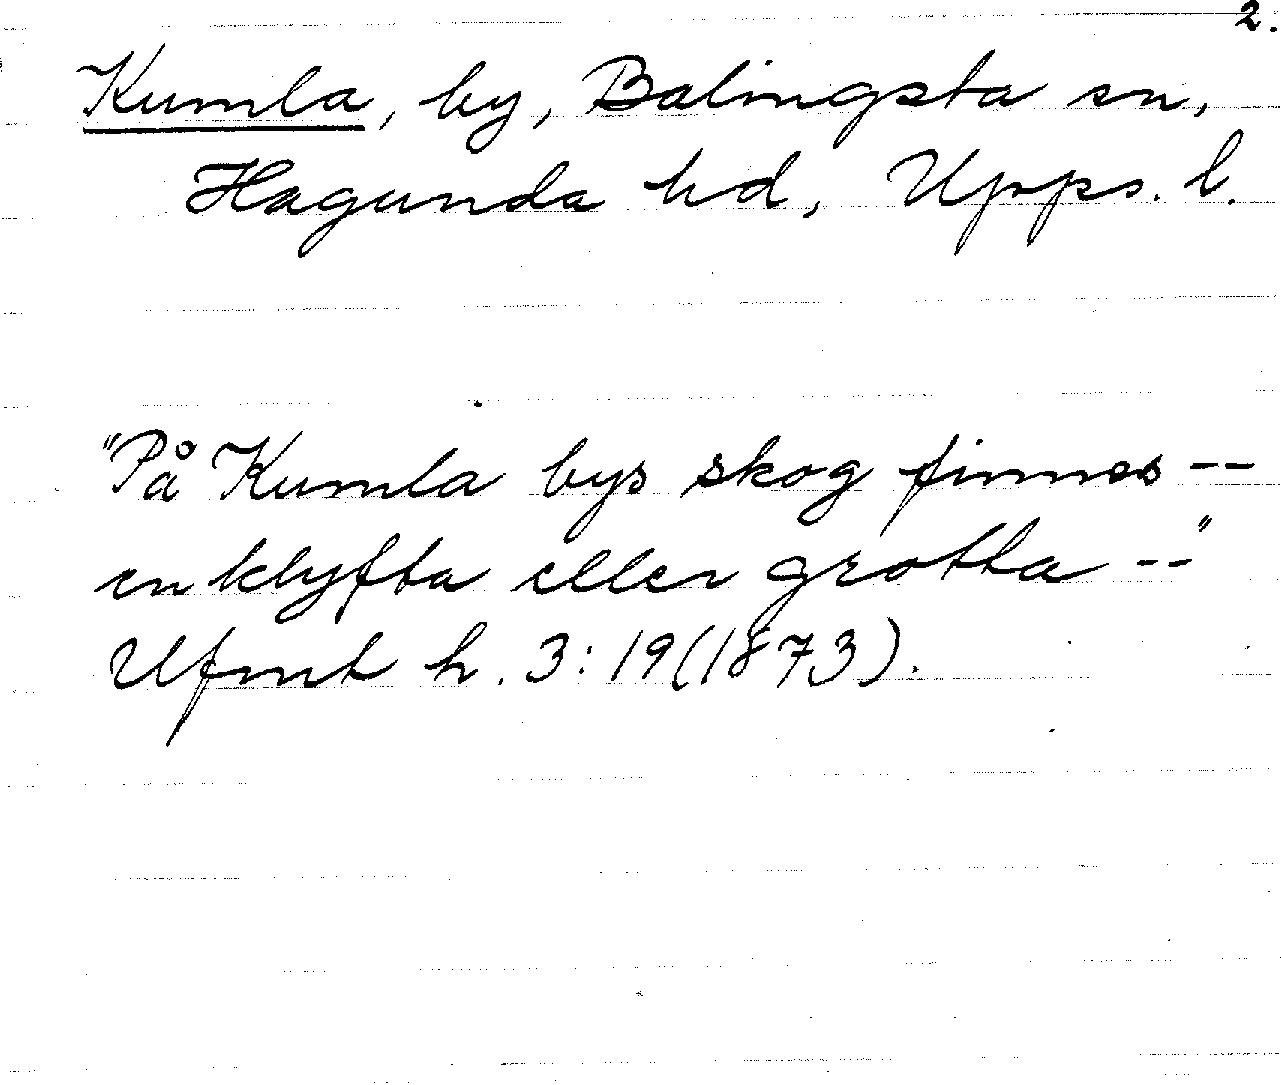 2.
Kumla, by, Balingsta sn,
Hagunda hd, Upps. l.
"På Kumla bys skog finnes --
en klyfta eller grotta --"
Ufmt h. 3:19 (1873).